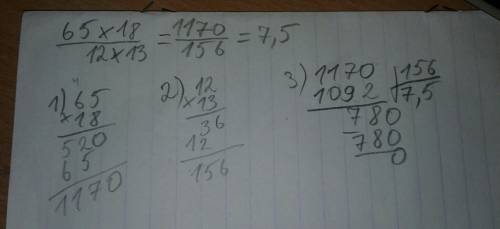 65×18 / 12×13 = 1170 / 156 = 7,5
1) 65
×18
520
65
1170
2) 12
×13
36
12
156
3) 1170 | 156
1092 | 7,5
780
780
0